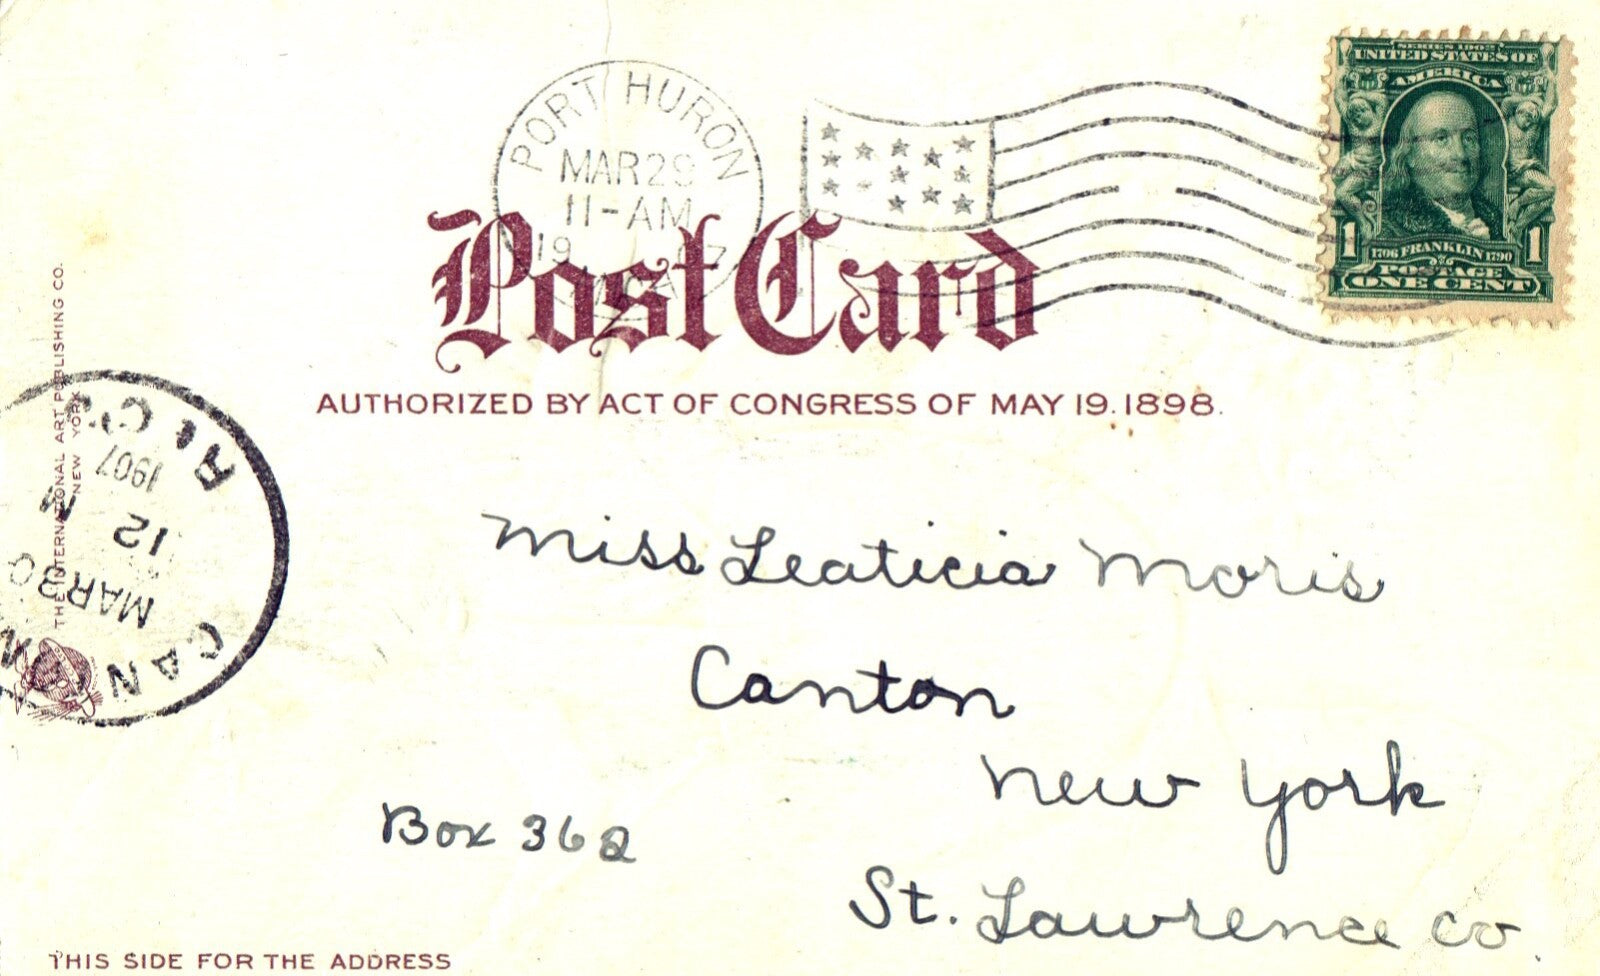 SERIES 1902
UNITED STATES OF
AMERICA
1706 FRANKLIN 1790
1 1
POSTAGE
ONE CENT
PORT HURON
MAR 29
11-AM
19 07
Post Card
AUTHORIZED BY ACT OF CONGRESS OF MAY 19. 1898.
THE INTERNATIONAL ART PUBLISHING CO.
NEW YORK
CANT
MAR 30
12 M
1907
Miss Leaticia Moris
Canton
New York
Box 362
St. Lawrence Co.
THIS SIDE FOR THE ADDRESS